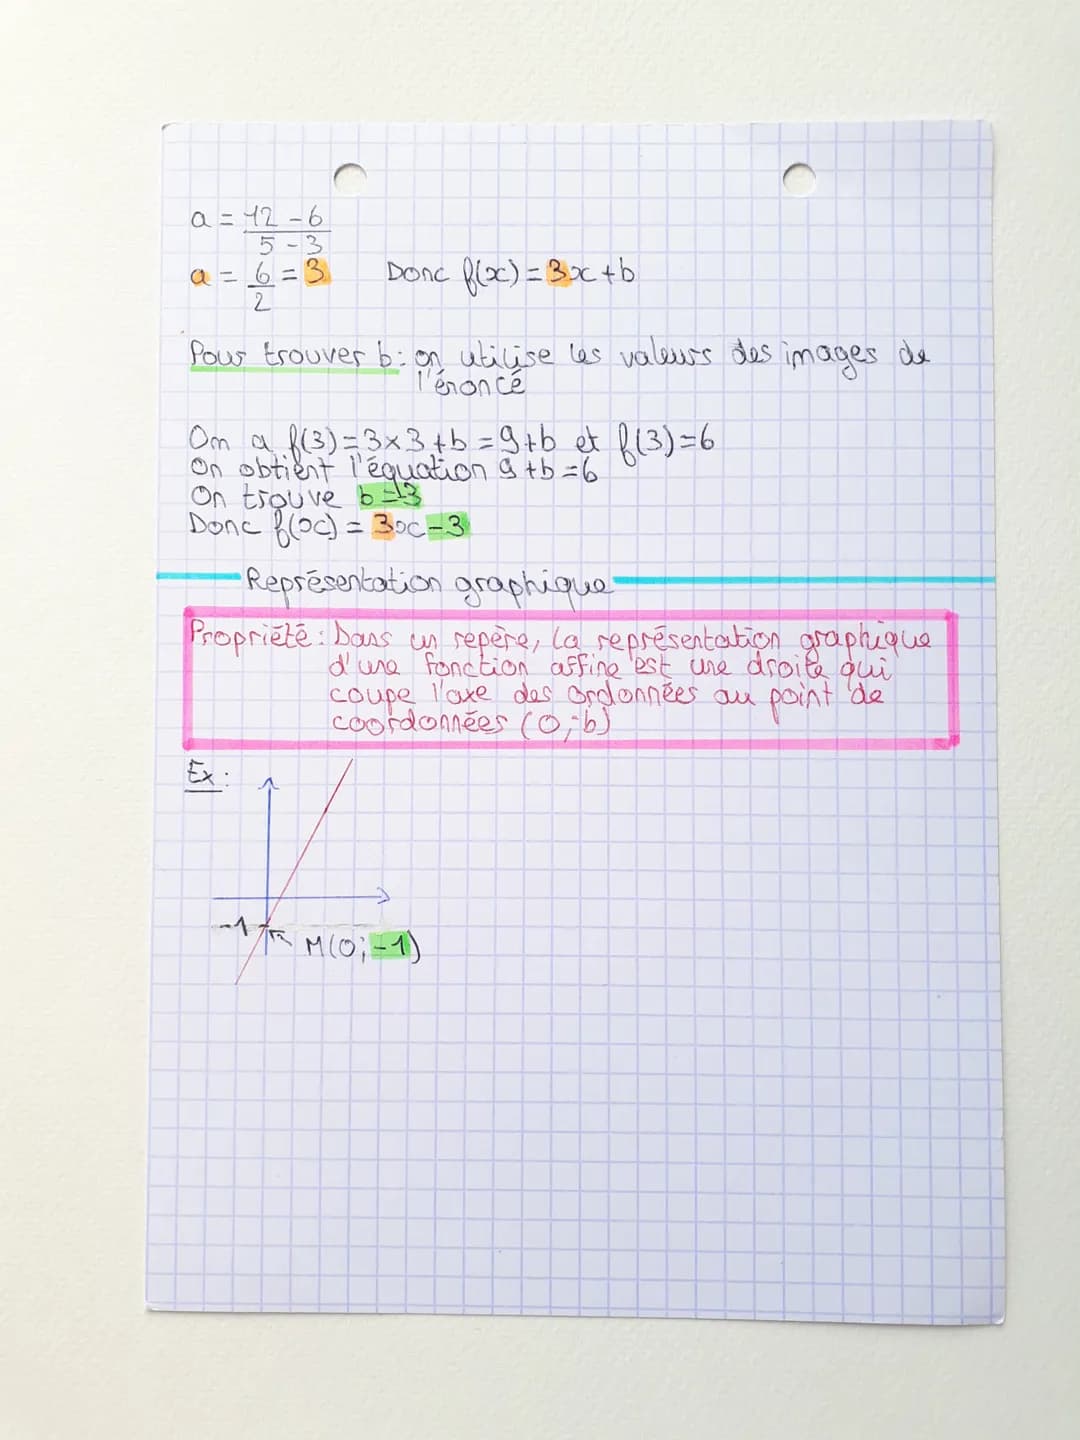 a = 12 - 6
5 - 3
a = 6 = 3 Donc f(x) = 3x + b
2
Pour trouver b : on utilise les valeurs des images de
l'énoncé
On a f(3) = 3×3 + b = 9 + b et f(3) = 6
On obtient l'équation 9 + b = 6
On trouve b = -3
Donc f(x) = 3x - 3
Représentation graphique
Propriété : Dans un repère, la représentation graphique
d'une fonction affine est une droite qui
coupe l'axe des ordonnées au point de
coordonnées (0 ; b)
Ex :
-1
M(0 ; -1)